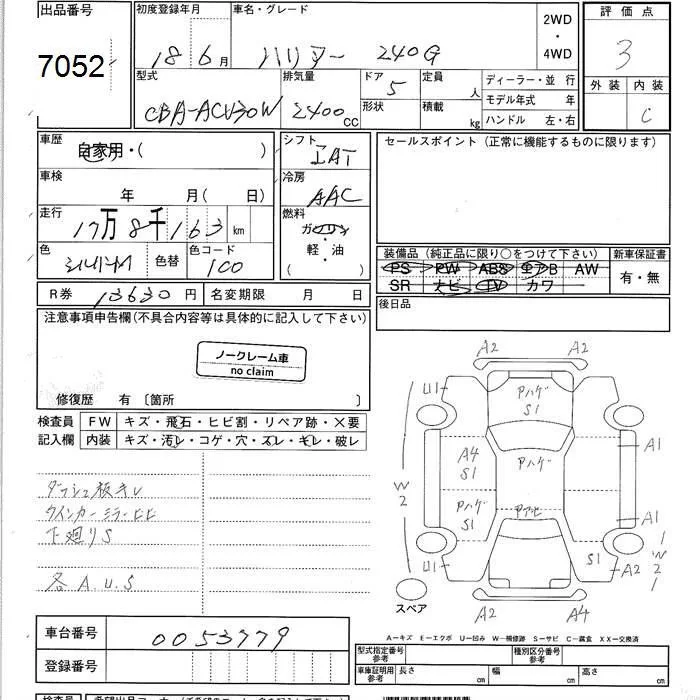 出品番号
7052
初度登録年月
18年6月
車名・グレード
ハリアー 240G
2WD
・
4WD
評価点
3
外装 内装
C
型式
CBA-ACU30W
排気量
2400cc
ドア
5
形状
定員
人
積載
kg
ディーラー・並行
モデル年式 年
ハンドル 左・右
車歴
自家用・( )
車検
年 月( 日)
走行
17万8千163km
色
シルバーM
色替
色コード
100
シフト
IAT
冷房
AAC
燃料
ガソリン
・
軽・油
( )
セールスポイント(正常に機能するものに限ります)
装備品(純正品に限り○をつけて下さい)
新車保証書
PS PW ABS エアB AW
SR ナビ TV カワ
有・無
後日品
R券 13630円
名変期限 月 日
注意事項申告欄(不具合内容等は具体的に記入して下さい)
ノークレーム車
no claim
修復歴 有〔箇所 〕
検査員
記入欄
FW キズ・飛石・ヒビ割・リペア跡・×要
内装 キズ・汚レ・コゲ・穴・スレ・キレ・破レ
ダッシュ板キレ
ウインカーミラーヒビ
下廻りS
各A.U.S
A2 A2
U1
Pハゲ
S1
A1
A4
S1
Pハゲ
W2
Pハゲ
S1
Pアセ
A1
W2
U1
S1
A2
スペア
A2 A4
車台番号
0053779
登録番号
A－キズ E－エクボ U－凹み W－補修跡 S－サビ C－腐食 XX－交換済
型式指定番号
参考
種別区分番号
参考
車庫証明用
参考
長さ cm
幅 cm
高さ cm